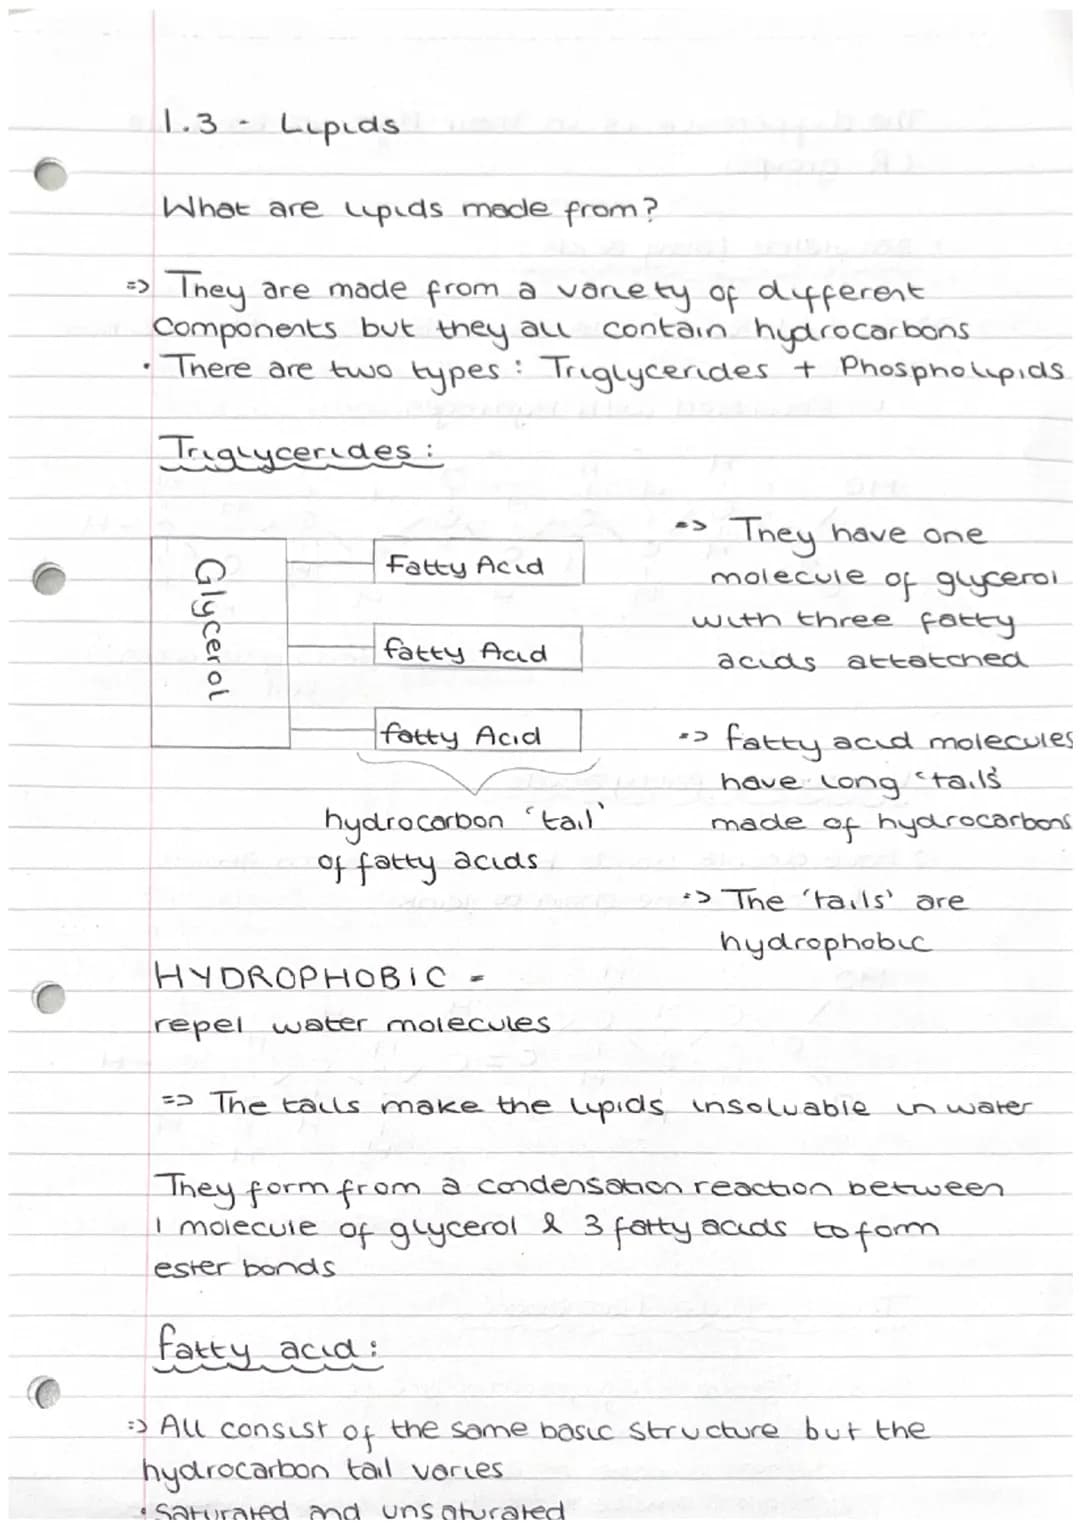 1.3 - Lipids
What are lipids made from?
=> They are made from a variety of different
Components but they all contain hydrocarbons
• There are two types : Triglycerides + Phospholipids
Triglycerides :
Glycerol
Fatty Acid
fatty Acid
fatty Acid
hydrocarbon 'tail'
of fatty acids
=> They have one
molecule of glycerol
with three fatty
acids attatched
=> fatty acid molecules
have long 'tails'
made of hydrocarbons
=> The 'tails' are
hydrophobic
HYDROPHOBIC -
repel water molecules
=> The tails make the lipids insoluable in water
They form from a condensation reaction between
1 molecule of glycerol & 3 fatty acids to form
ester bonds
fatty acid :
=> All consist of the same basic structure but the
hydrocarbon tail varies
• Saturated and unsaturated